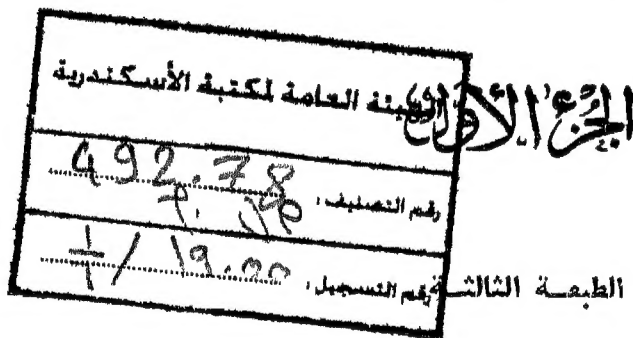 الجزء الأول
الهيئة العامة لمكتبة الأسكندرية
رقم التصنيف: 492.78
رقم التسجيل:
الطبعة الثالثة